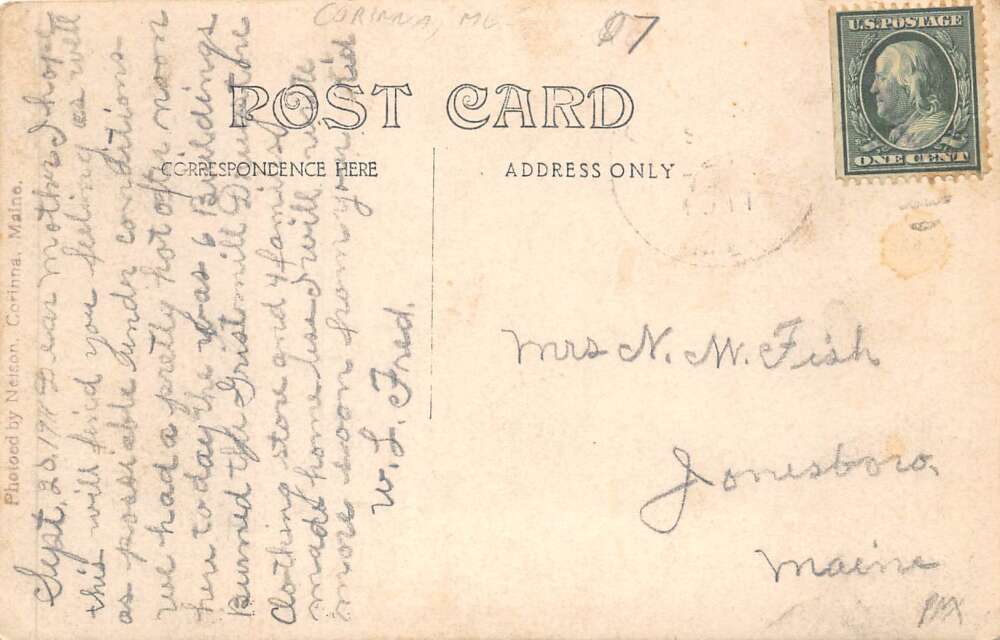 CORINNA, ME
U.S. POSTAGE
ONE CENT
POST CARD
CORRESPONDENCE HERE
ADDRESS ONLY
Mrs N. W. Fish
Jonesboro,
Maine
Photoed by Nelson, Corinna, Maine.
Sept, 20, 1911 Dear mother I hope
this will find you feeling as well
as possible under conditions
we had a pretty hot afternoon
here today there was 6 Buildings
Burned the Gristmill Drugstore
Clothing store and 4 families
made homeless I will write
more soon from your kid
W. L. Fred.